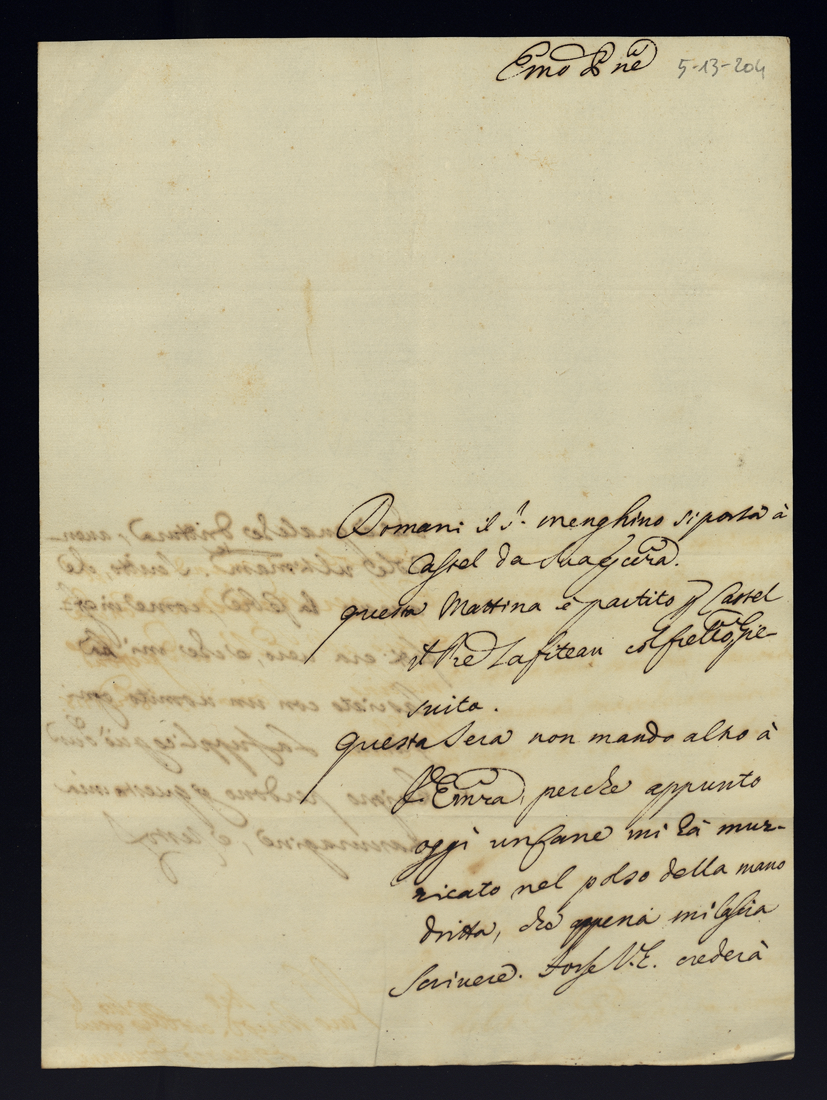 Emo Pne 5-13-204
Domani il Sr. Menghino si porta à
Castel da Sua
questa Mattina è partito p Castel
il Pre Lafiteau col fretto Gie-
suita.
questa Sera non mando altro à
V. Emza, perche appunto
oggi un Cane mi hà mur-
ricato nel polso della mano
dritta, che appena mi lascia
Scrivere. Forse V.E. crederà